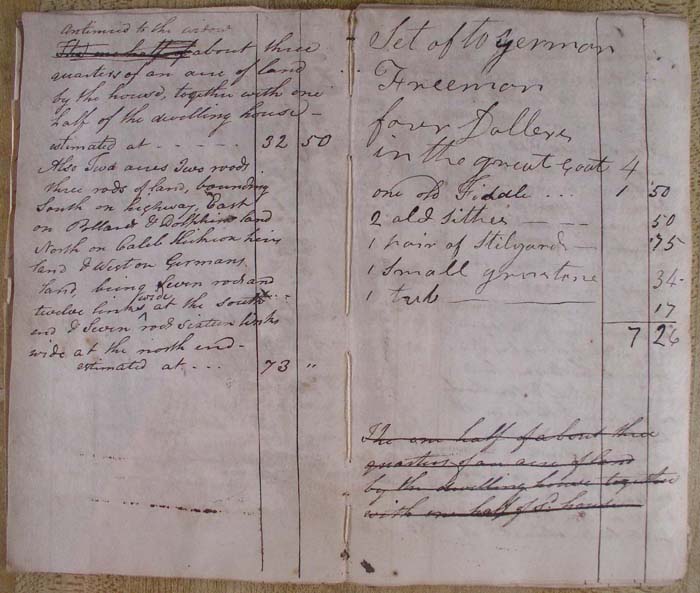 to the widow
The one half of about three
quarters of an acre of land
by the house, together with one
half of the dwelling house -
estimated at - - - - - 32 50
Also Two acres Two roods
three rods of land, bounding
South on highway, East
on Pollard & Dolphins land
North on Caleb heirs
land & West on Germans
land being Seven rods and
twelve links wide at the south
end & Seven rods Sixteen links
wide at the north end -
estimated at - - - 73 "
Set of to german
Freeman
fower Dollers
in the great Goat 4
one old Fiddle - - - 1 50
2 old Sithes - - - 50
1 pair of Stilyards - 75
1 Small grinstone 34
1 tub 17
7 26
The one half of about three
quarters of an acre of land
by the dwelling house together
with one half of Sd. house